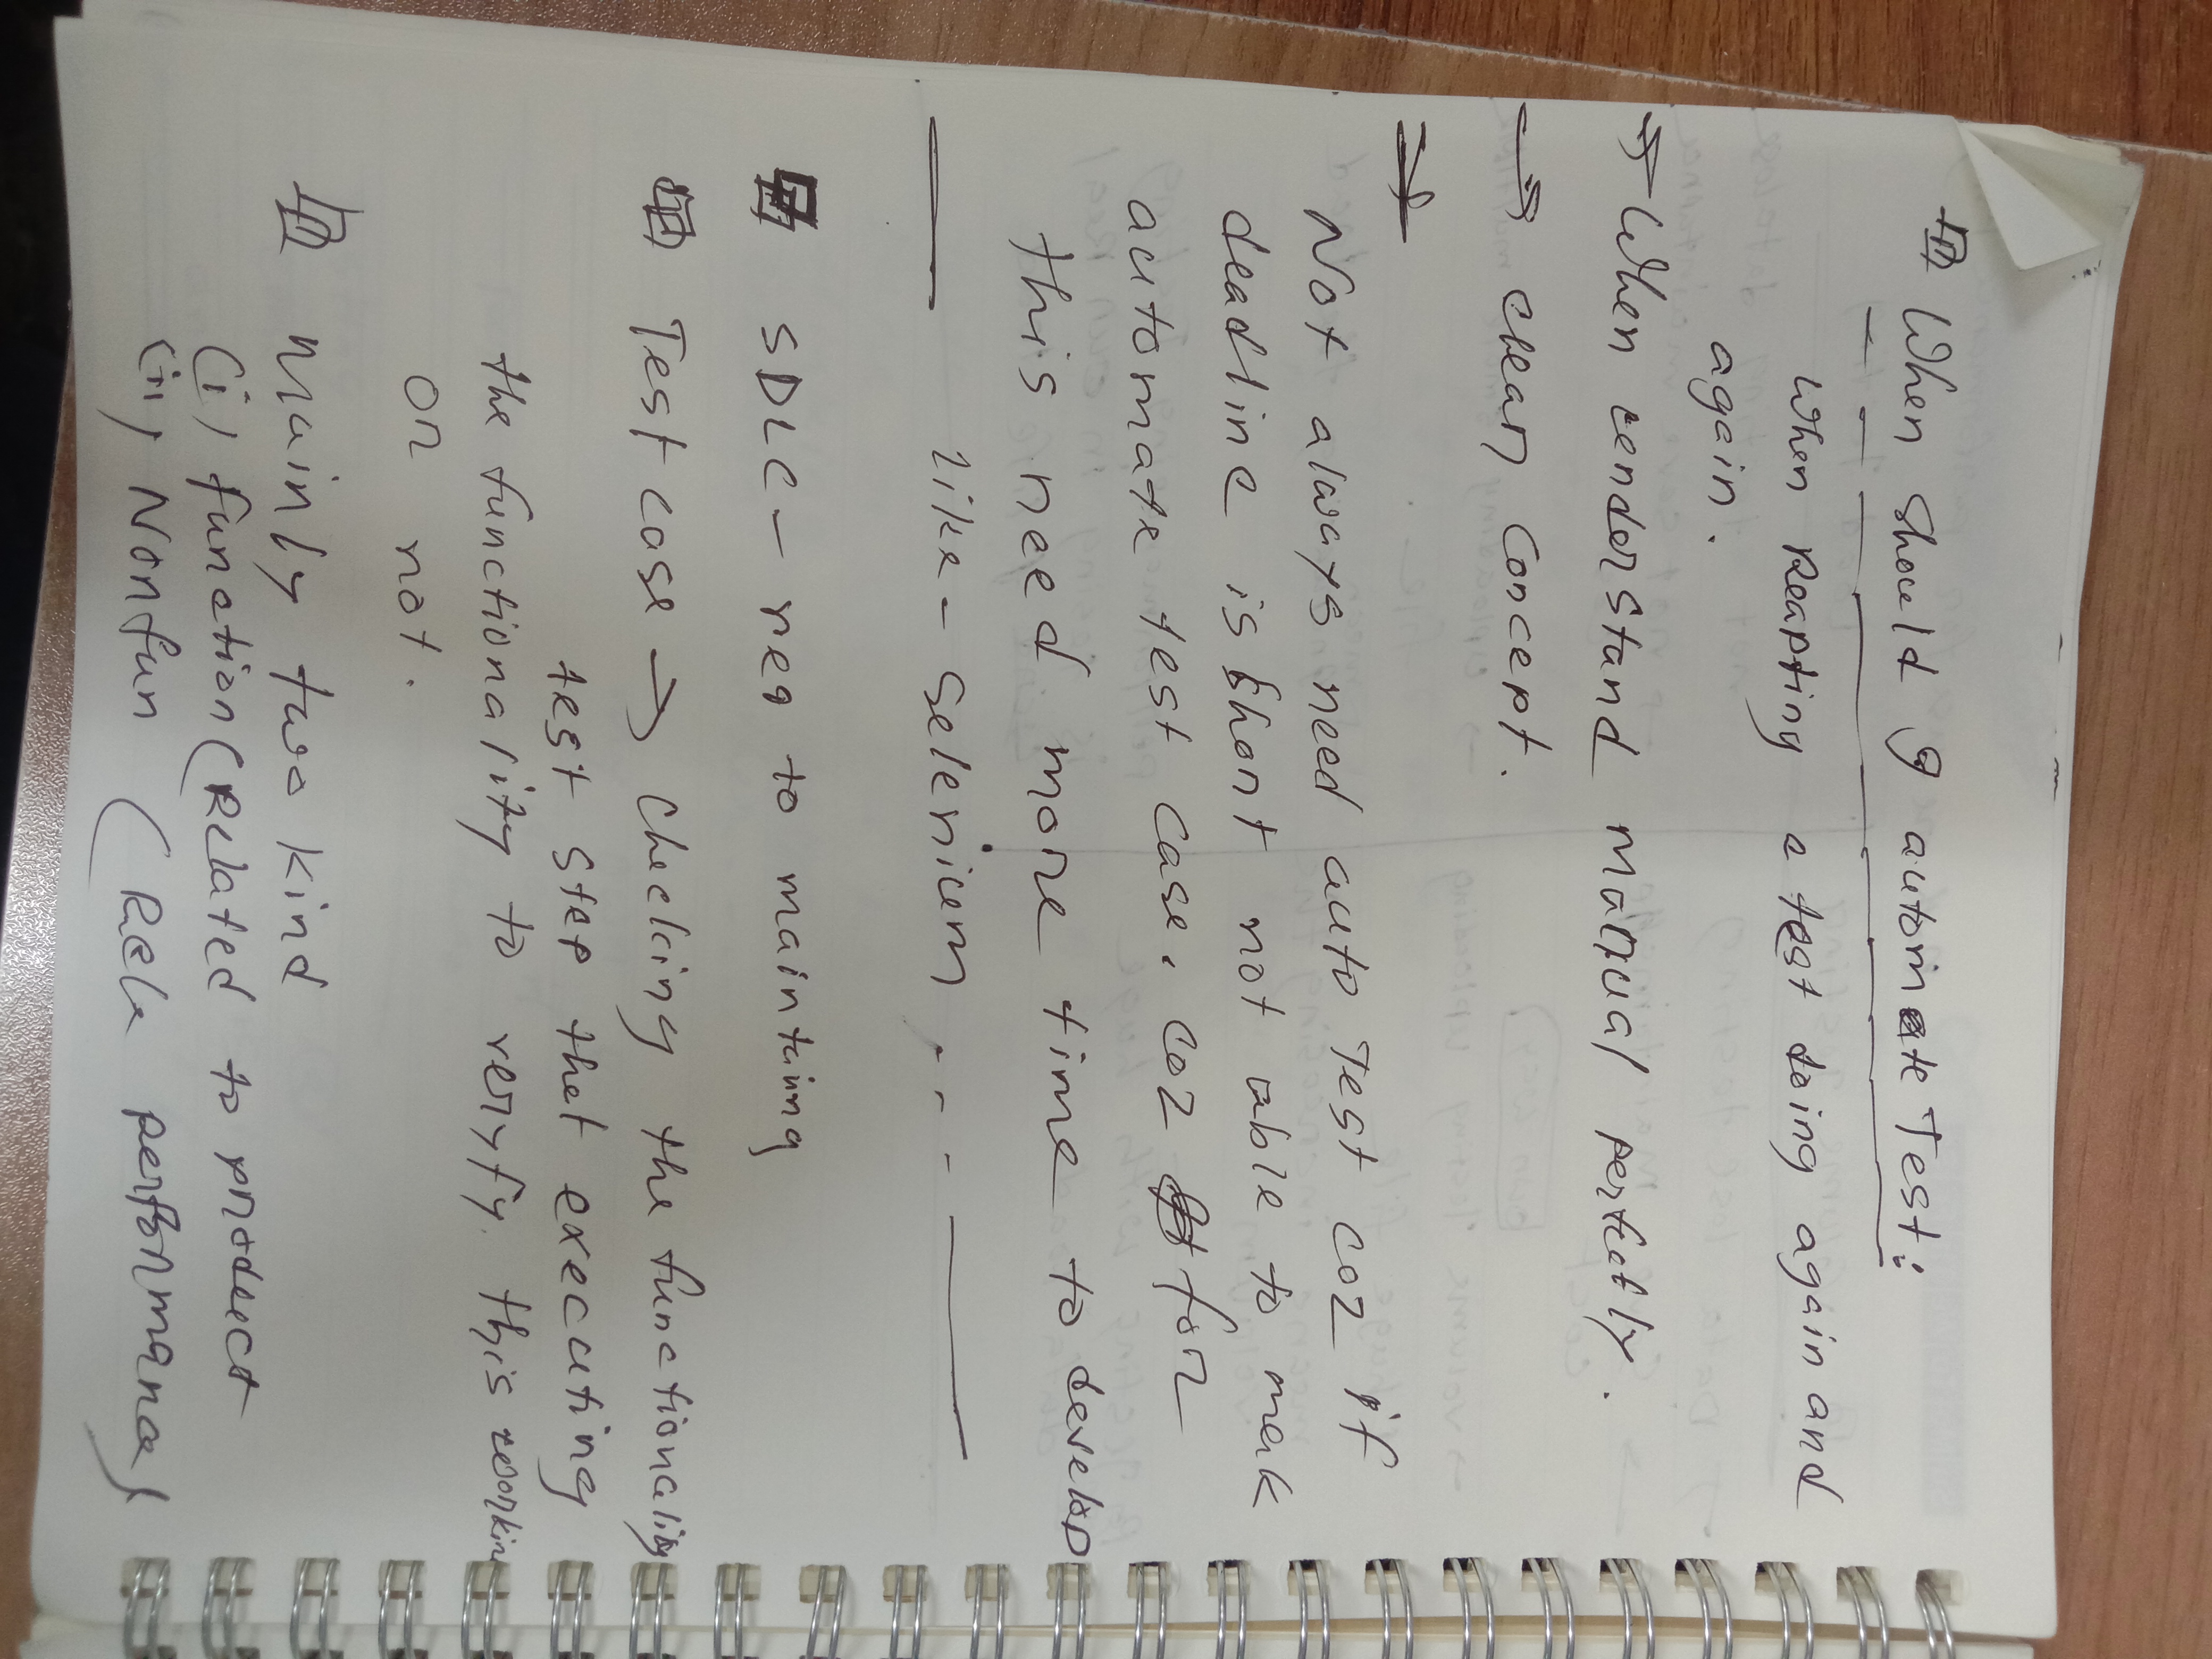 When should I automate Test:
When Reapting a test doing again and
again.
→ When understand manual perfectly.
→ clear concept.
→
Not always need auto Test coz if
deadline is short not able to mak
automate test case. coz for
this need more time to develop
like - Selenium . . . —
SDLC - req to maintaing
Test case → checking the functionality
test step that executing
the functionality to veryfy this workin
or not.
mainly two kind
(i) function (Related to product
(ii) Nonfun ( Rela performance)